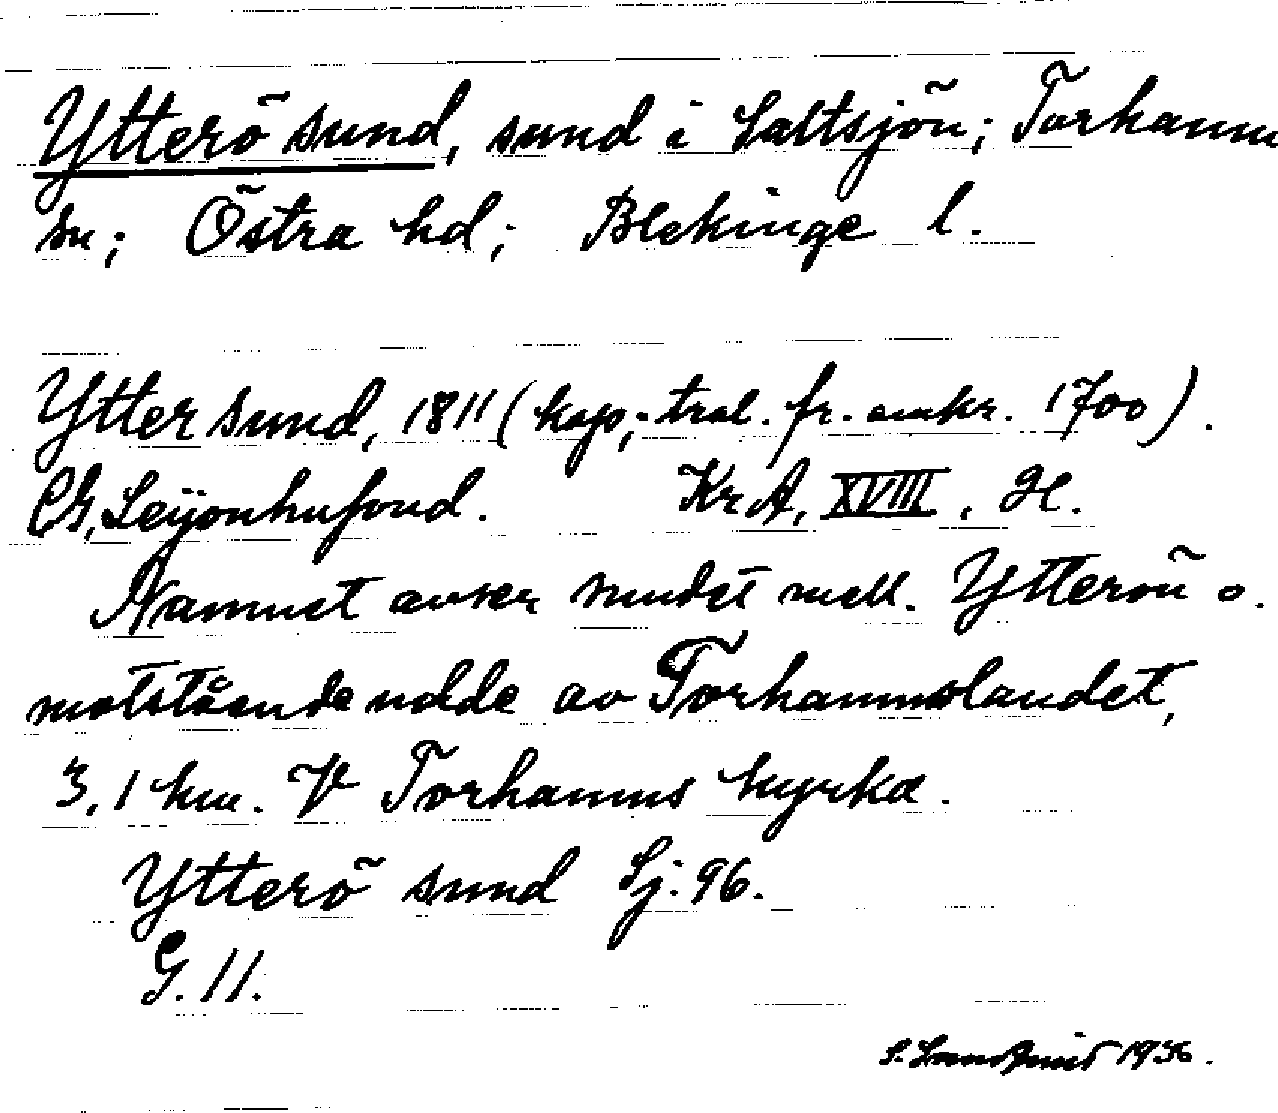 Ytterö sund, sund i Saltsjön; Torhamn
sn; Östra hd; Blekinge l.
Ytter sund, 1811 (kop,- tral. fr. omkr. 1700).
CG, Leijonhufvud. KrA, XVIII, H.
Namnet avser sundet mell. Ytterön o.
motstående udde av Torhamnslandet,
3,1 km. V Torhamns kyrka.
Ytterö sund Sj. 96.
G. 11.
1936.